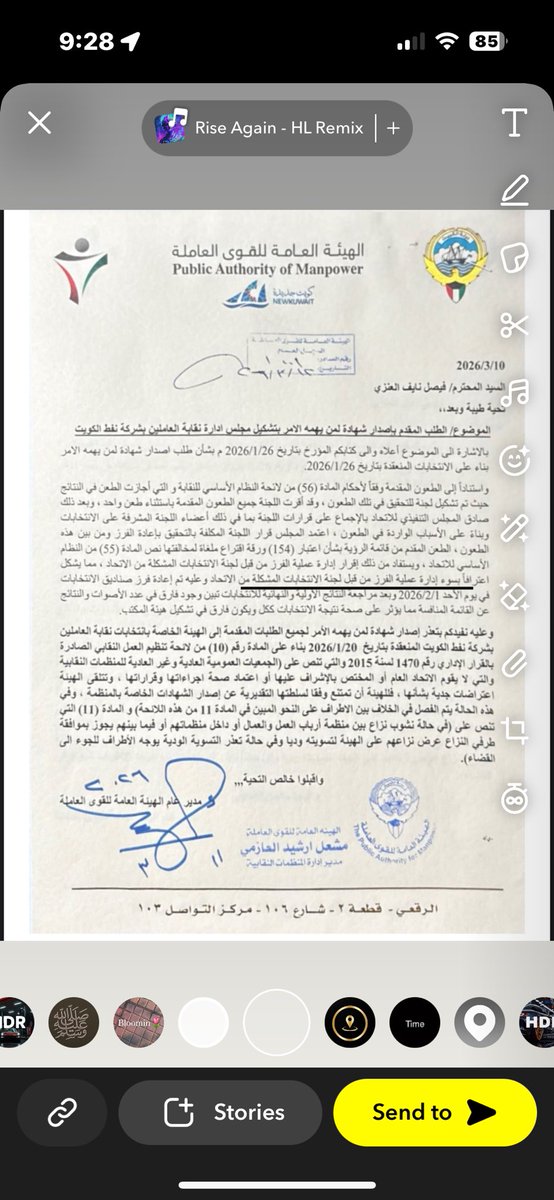 9:28
85
Rise Again - HL Remix
+
T
الهيئة العامة للقوى العاملة
Public Authority of Manpower
كويت جديدة
NEWKUWAIT
2026/3/10
السيد المحترم/ فيصل نايف العنزي
تحية طيبة وبعد،،
الموضوع/ الطلب المقدم بإصدار شهادة لمن يهمه الامر بتشكيل مجلس ادارة نقابة العاملين بشركة نفط الكويت
بالاشارة الى الموضوع أعلاه والى كتابكم المؤرخ بتاريخ 2026/1/26 م بشأن طلب اصدار شهادة لمن يهمه الامر
بناء على الانتخابات المنعقدة بتاريخ 2026/1/26.
واستناداً إلى الطعون المقدمة وفقاً لأحكام المادة (56) من لائحة النظام الأساسي للنقابة و التي أجازت الطعن في النتائج
حيث تم تشكيل لجنة للتحقيق في تلك الطعون ، وقد أقرت اللجنة جميع الطعون المقدمة باستثناء طعن واحد ، وبعد ذلك
صادق المجلس التنفيذي للاتحاد بالإجماع على قرارات اللجنة بما في ذلك أعضاء اللجنة المشرفة على الانتخابات
وبناءً على الأسباب الواردة في الطعون ، اعتمد المجلس قرار اللجنة المكلفة بالتحقيق بإعادة الفرز ومن بين هذه
الطعون ، الطعن المقدم من قائمة الرؤية بشأن اعتبار (154) ورقة اقتراع ملغاة لمخالفتها نص المادة (55) من النظام
الأساسي للاتحاد، ويستفاد من ذلك إقرار إدارة عملية الفرز من قبل لجنة الانتخابات المشكلة من الاتحاد ، مما يشكل
اعترافاً بسوء إدارة عملية الفرز من قبل لجنة الانتخابات المشكلة من الاتحاد وعليه تم إعادة فرز صناديق الانتخابات
في يوم الأحد 2026/2/1 وبعد مراجعة النتائج الأولية والنهائية للانتخابات تبين وجود فارق في عدد الأصوات والنتائج
عن القائمة المنافسة مما يؤثر على صحة نتيجة الانتخابات ككل ويكون فارق في تشكيل هيئة المكتب.
وعليه نفيدكم بتعذر إصدار شهادة لمن يهمه الأمر لجميع الطلبات المقدمة إلى الهيئة الخاصة بانتخابات نقابة العاملين
بشركة نفط الكويت المنعقدة بتاريخ 2026/1/20 بناء على المادة رقم (10) من لائحة تنظيم العمل النقابي الصادرة
بالقرار الإداري رقم 1470 لسنة 2015 والتي تنص على (الجمعيات العمومية العادية وغير العادية للمنظمات النقابية
والتي لا يقوم الاتحاد العام أو المختص بالإشراف عليها أو اعتماد صحة اجراءاتها و قراراتها ، وتتلقى الهيئة
اعتراضات جدية بشأنها ، فللهيئة أن تمتنع وفقا لسلطتها التقديرية عن إصدار الشهادات الخاصة بالمنظمة ، وفي
هذه الحالة يتم الفصل في الخلاف بين الاطراف على النحو المبين في المادة 11 من هذه اللائحة) و المادة (11) التي
تنص على (في حالة نشوب نزاع بين منظمة أرباب العمل والعمال أو داخل منظماتهم أو فيما بينهم يجوز بموافقة
طرفي النزاع عرض نزاعهم على الهيئة لتسويته وديا وفي حالة تعذر التسوية الودية يوجه الأطراف للجوء الى
القضاء).
واقبلوا خالص التحية,,,
مدير عام الهيئة العامة للقوى العاملة
الهيئة العامة للقوى العاملة
مشعل ارشيد العازمي
مدير إدارة المنظمات النقابية
The Public Authority for Manpower
الرقعي - قطعة ٢ - شارع ١٠٦ - مركز التواصل ١٠٣
Bloomin
Time
Stories
Send to